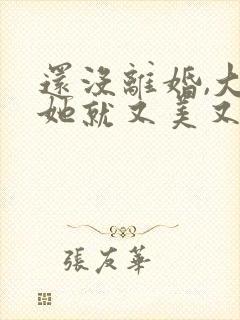 還沒離婚,大
她就又美又
張友華